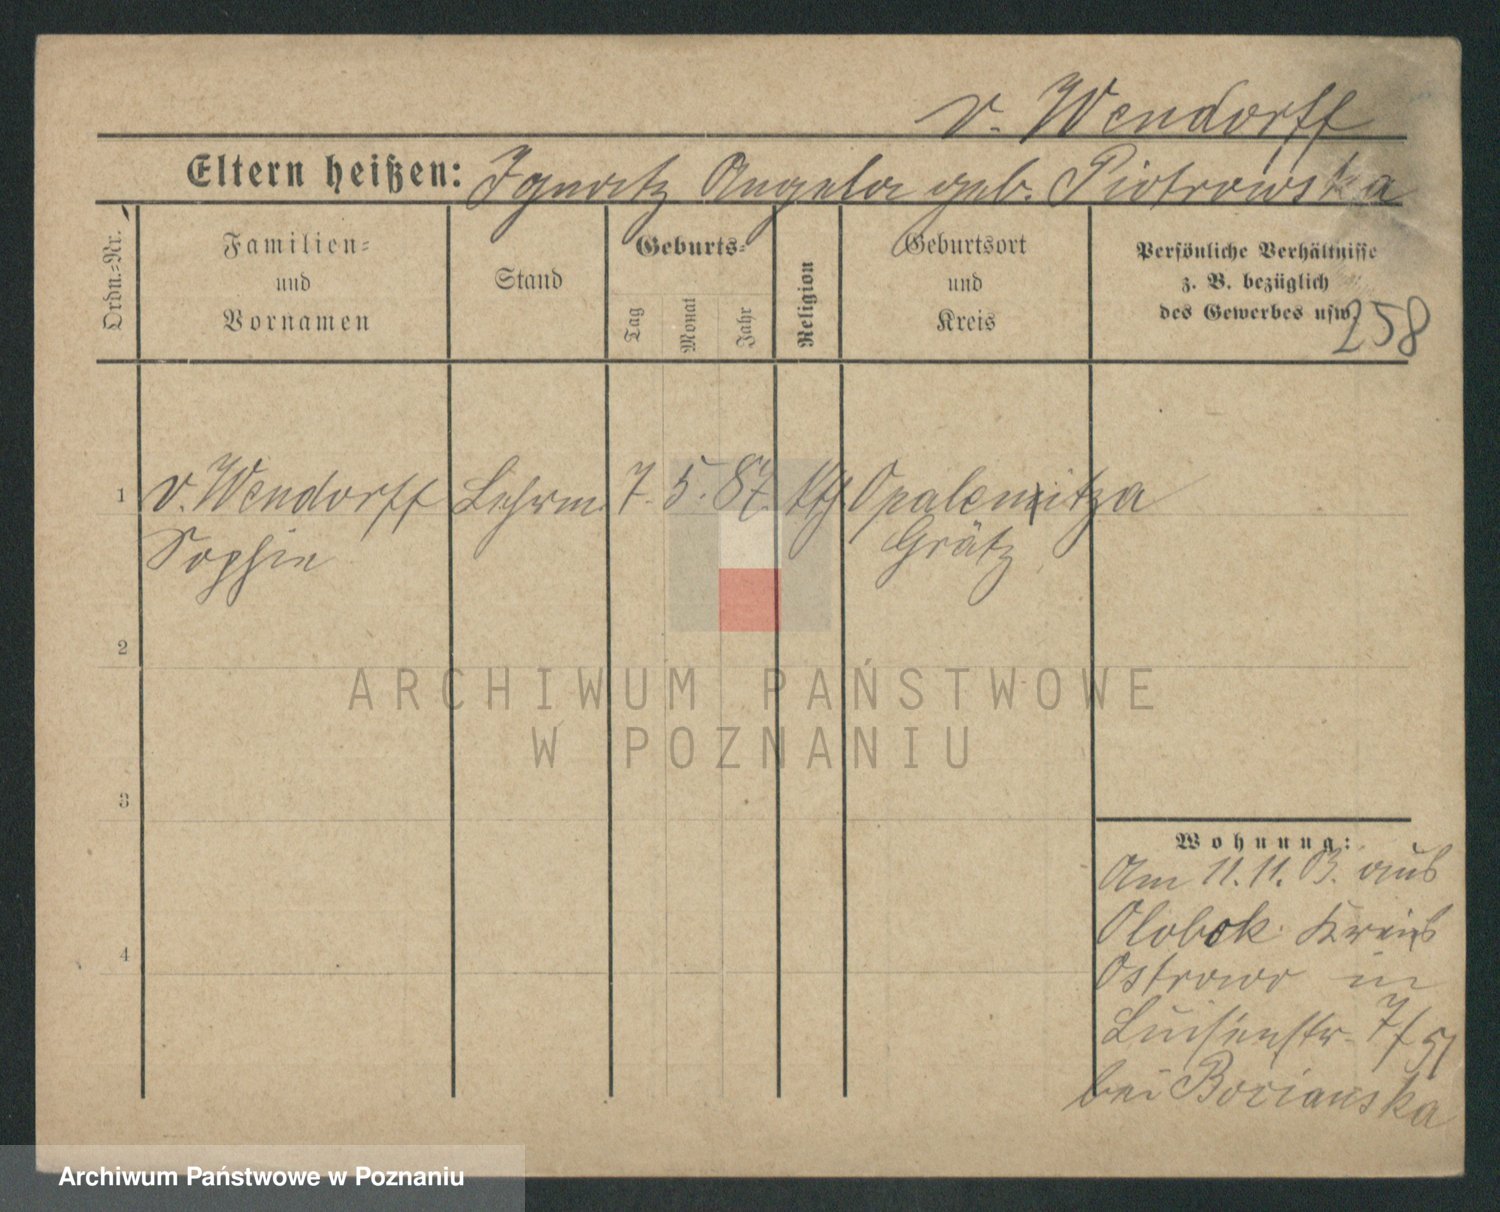 v. Wendorff
Eltern heißen: Ignatz Angela geb. Piotrowska
Ordn.=Nr.
Familien=
und
Vornamen
Stand
Geburts=
Tag
Monat
Jahr
Religion
Geburtsort
und
Kreis
Persönliche Verhältnisse
z. B. bezüglich
des Gewerbes usw.
258
1 v. Wendorff Lehrm. 7. 5. 87. kth. Opalenitza
Sophie Grätz
2
3
4
Wohnung:
Am 11.11. 03. aus
Olobok Kreis
Ostrowo in
Luisenstr. 7/
bei Bocianska
ARCHIWUM PAŃSTWOWE
W POZNANIU
Archiwum Państwowe w Poznaniu